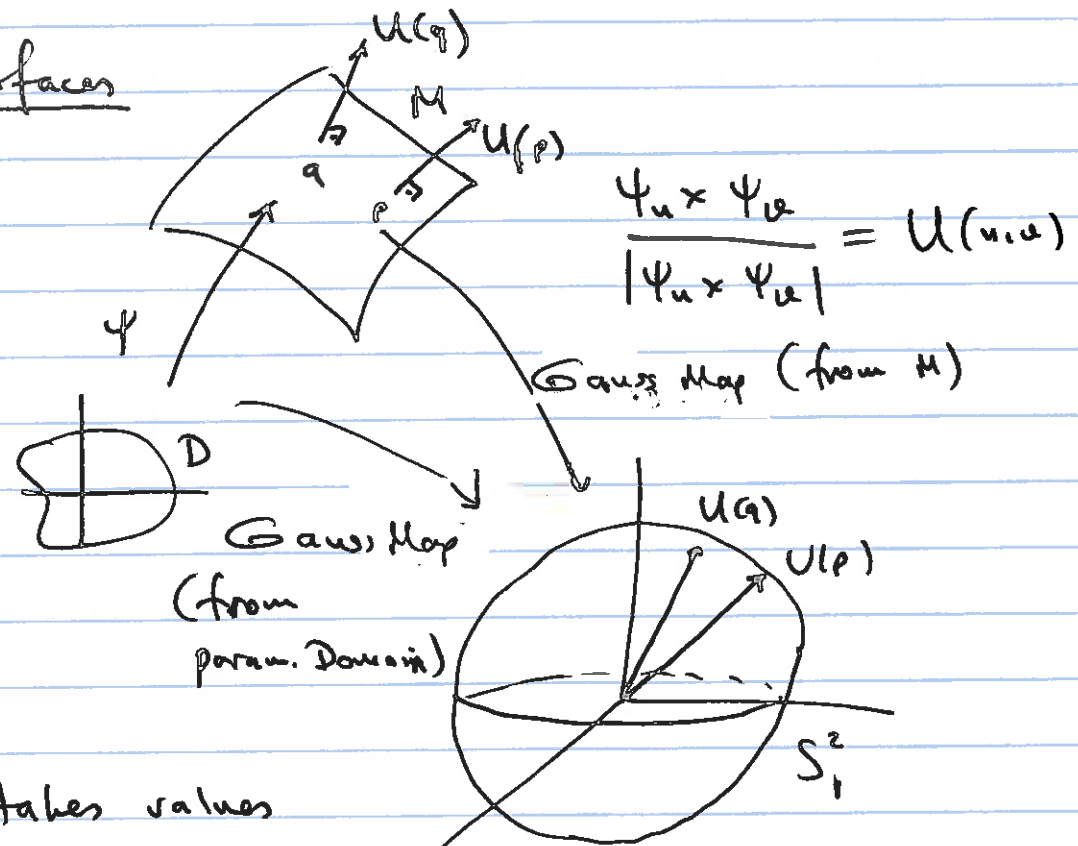 faces
U(q)
M
U(p)
q
p
Ψ
Ψu × Ψv / |Ψu × Ψv| = U(u,v)
Gauss Map (from M)
D
Gauss Map
(from
param. Domain)
U(q)
U(p)
S₁²
takes values